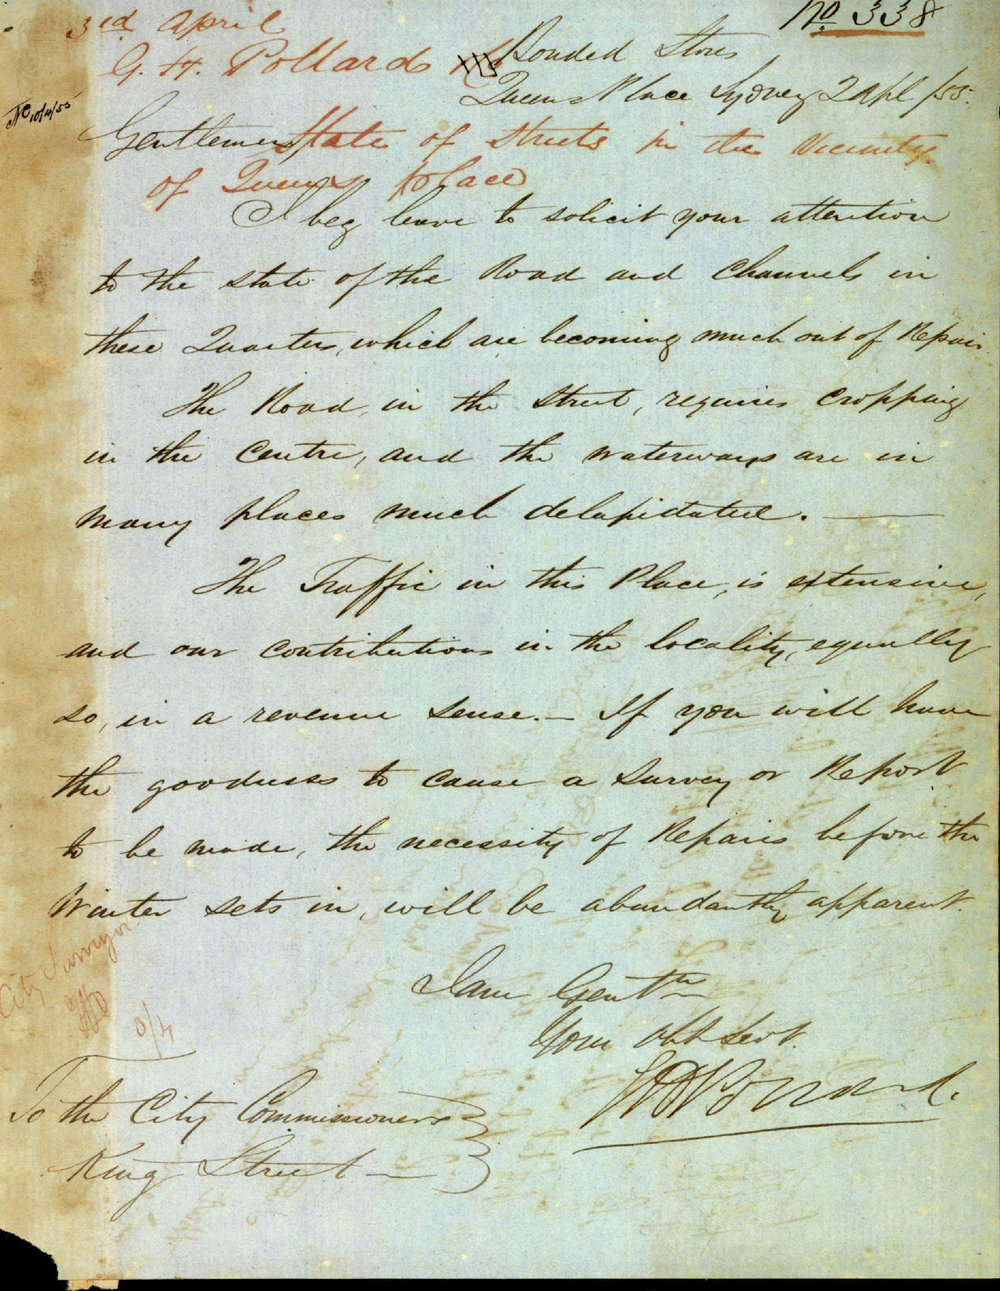 No 338
3rd April
G. H. Pollard
Bonded Stores
Queens Place Sydney 2 Apl /55.
10/4/55
Gentlemen,
State of Streets in the Vicinity
of Queens place
I beg leave to solicit your attention
to the state of the Road and Channels in
these Quarters, which are becoming much out of Repair.
The Road, in the Street, requires cropping
in the Centre, and the waterways are in
many places much delapidated. —
The Traffic in this Place, is extensive,
and our contributions in the locality, equally
so, in a revenue sense. — If you will have
the goodness to cause a Survey or Report
to be made, the necessity of Repairs before the
Winter sets in, will be abundantly apparent.
I am Gentn
Your obt Servt.
City Surveyor
9/4
To the City Commissioners
King Street —